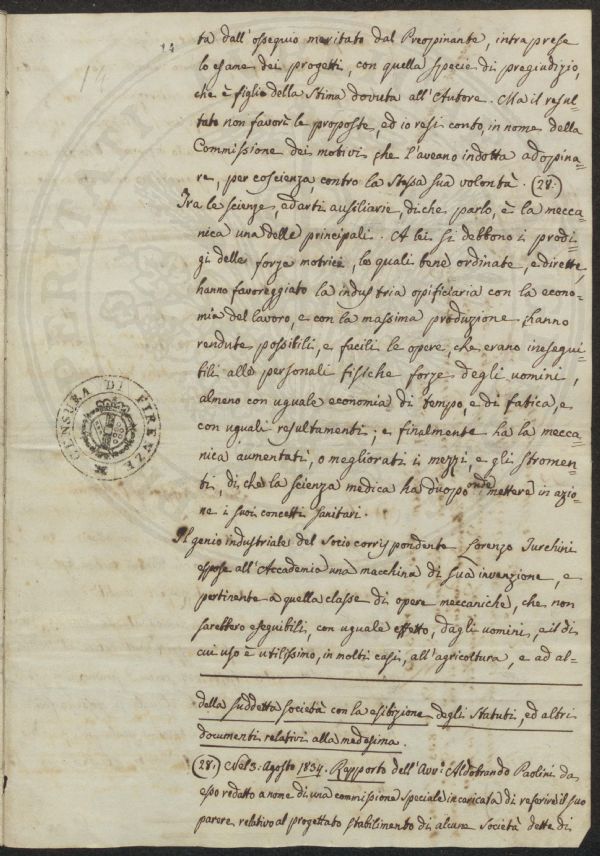 ta dall'ossequio meritato dal Preopinante, intraprese
lo esame dei progetti, con quella specie di pregiudizio,
che è figlio della Stima dovuta all'Autore. Ma il resul=
tato non favorì le proposte, ed io resi conto, in nome della
Commissione dei motivi che l'aveano indotta ad opina=
re, per coscienza, contro la Stessa sua volontà. (28.)
Tra le scienze, ad arti ausiliarie, di che parlo, è la mecca=
nica una delle principali. A lei si debbono i prodi=
gi delle forze motrici, le quali bene ordinate, e dirette,
hanno favoreggiato la industria opificiaria con la econo=
mia del lavoro, e con la massima produzione hanno
rendute possibili, e facili le opere, che erano inesegui=
bili alle personali fisiche forze degli uomini,
almeno con uguale economia di tempo, e di fatica, e
con uguali resultamenti; e finalmente ha la mecca=
nica aumentati, o migliorati i mezzi, e gli stromen=
ti, di che la scienza medica ha d'uopo onde mettere in azio=
ne i suoi concetti sanitari.
Il genio industriale del Socio corrispondente Lorenzo Turchini
espose all'Accademia una macchina di sua invenzione, e
pertinente a quella classe di opere meccaniche, che non
sarebbero eseguibili, con uguale effetto, dagli uomini, e il di
cui uso è utilissimo, in molti casi, all'agricoltura, e ad al=
della suddetta società con la esibizione degli Statuti, ed altri
documenti relativi alla medesima.
(28.) Nel 3. Agosto 1834. Rapporto dell'Avv.º Aldobrando Paolini da
esso redatto a nome di una commissione speciale incaricata di referire il suo
parere relativo al progettato stabilimento di alcune Società dette di
CENSURA DI FIRENZE